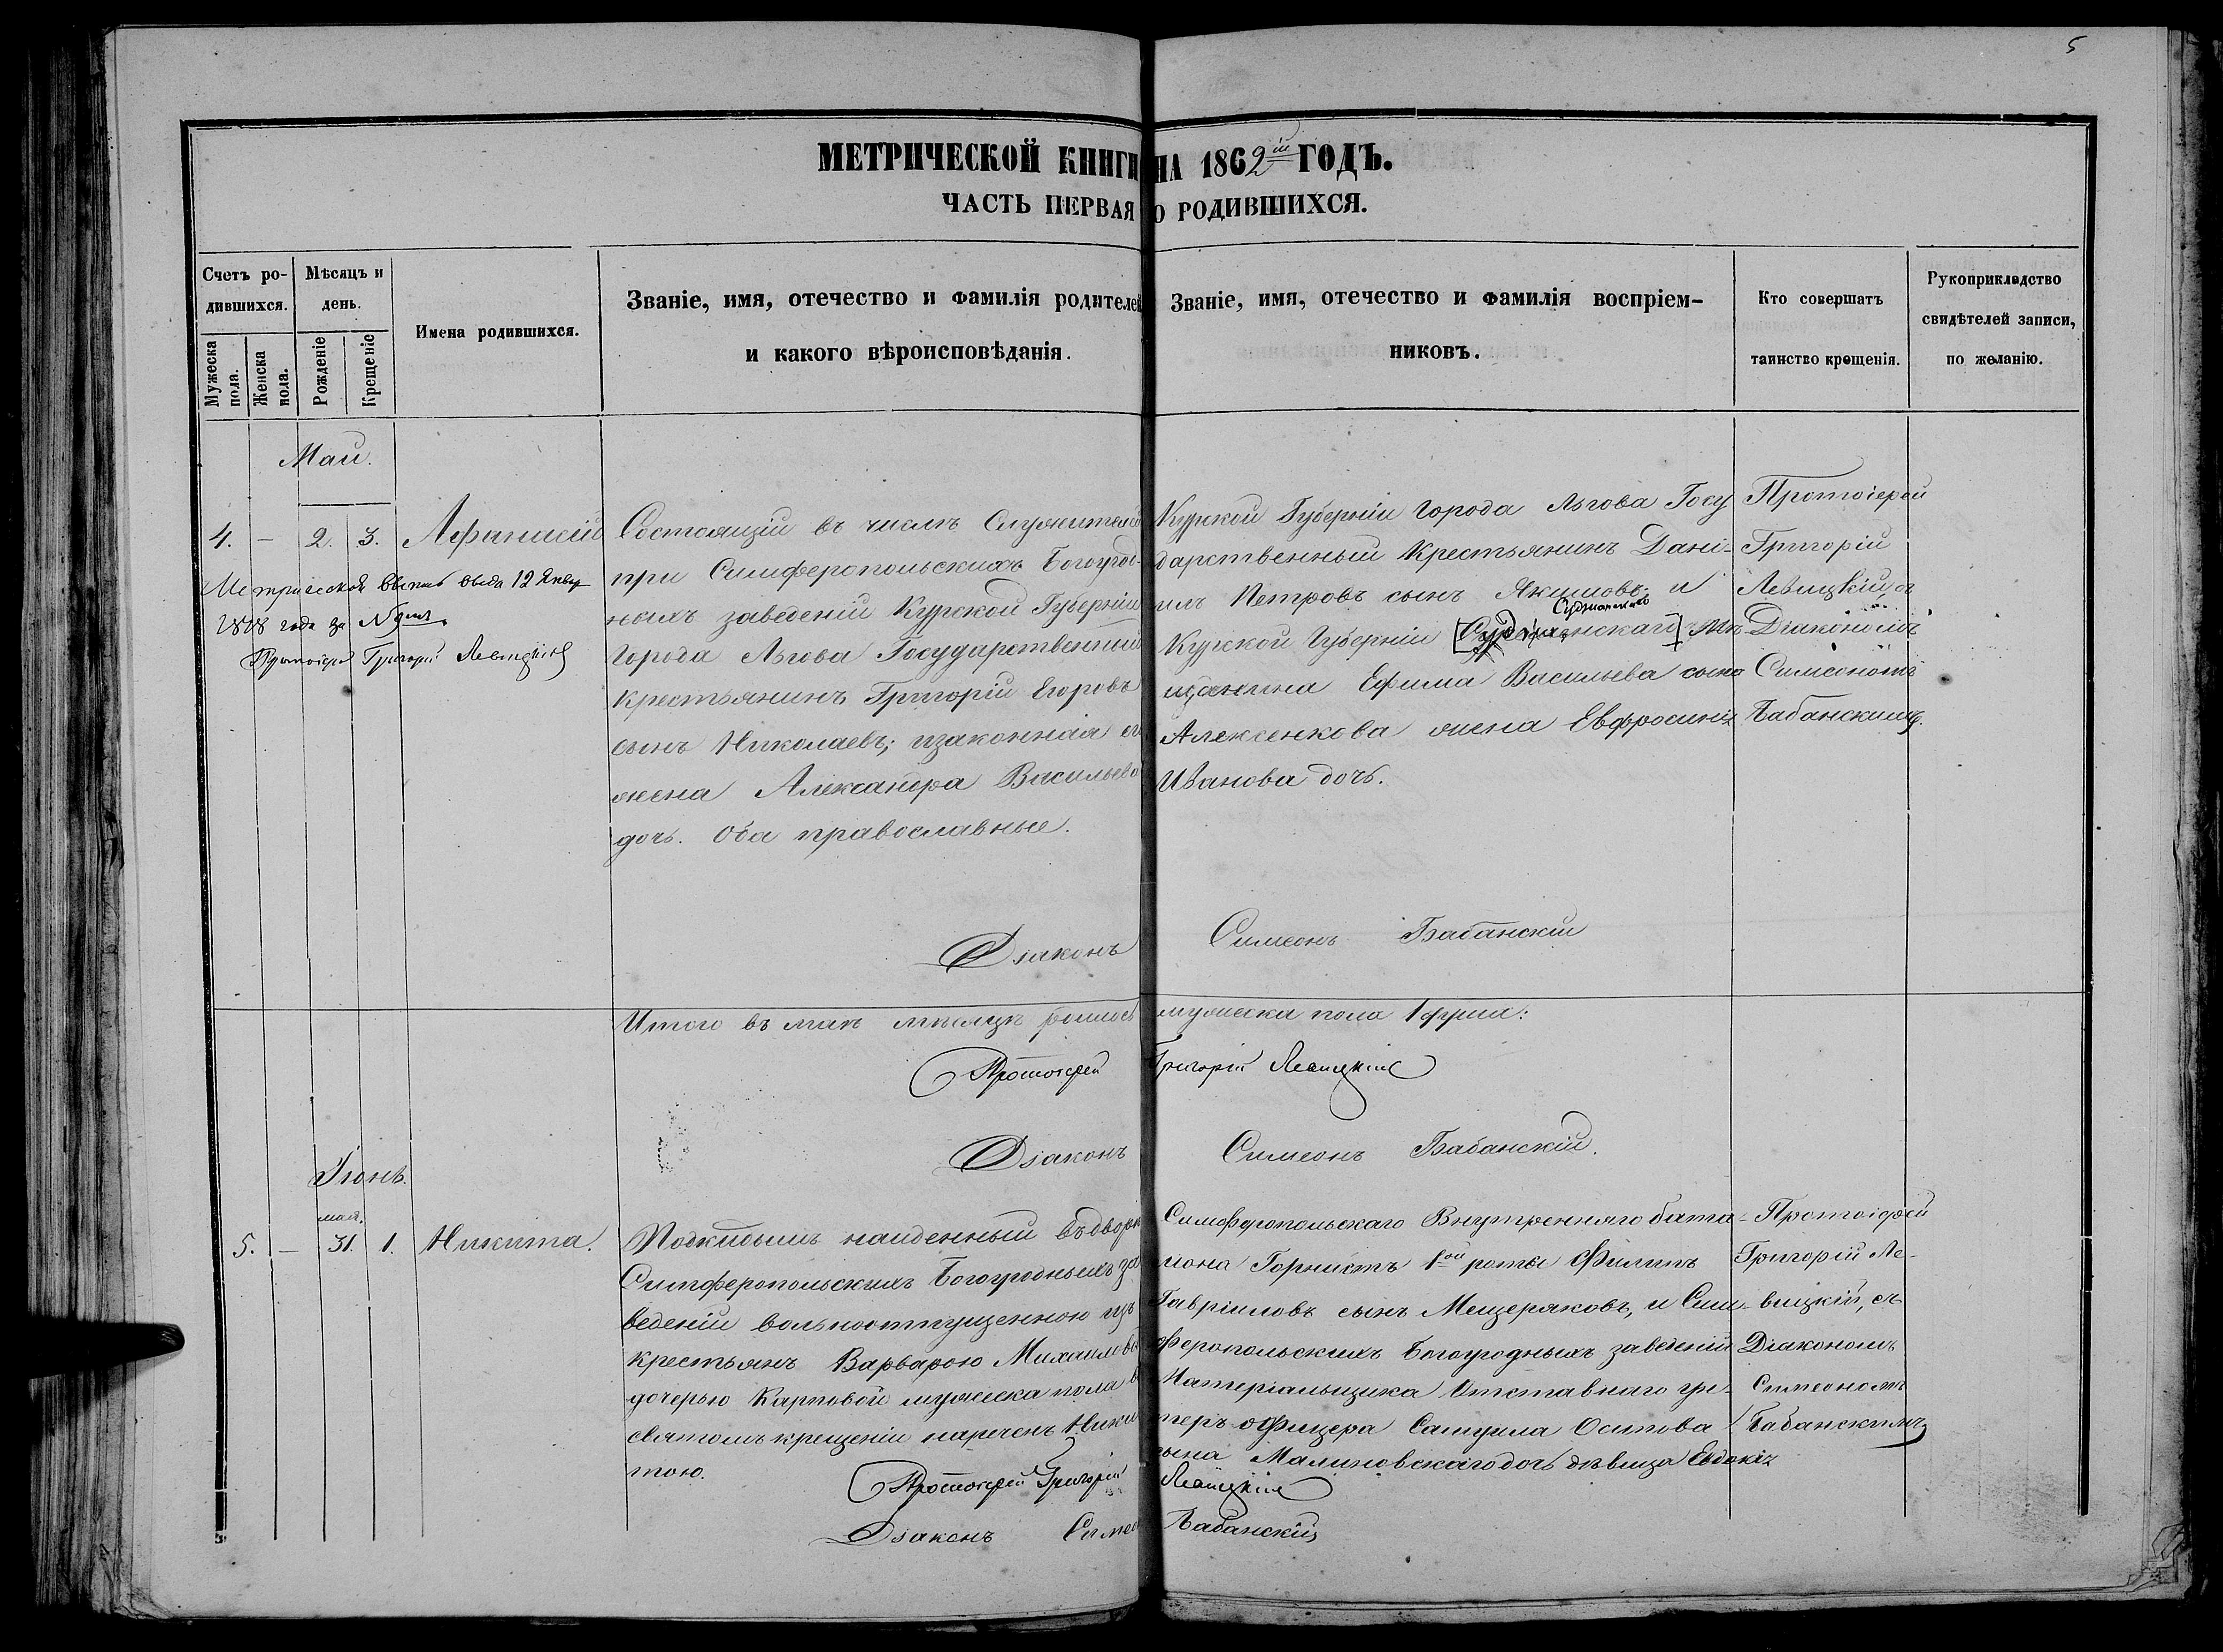 5
МЕТРИЧЕСКОЙ КНИГИ НА 1862ій ГОДЪ.
ЧАСТЬ ПЕРВАЯ О РОДИВШИХСЯ.
Счетъ ро-
дившихся.
Мужеска пола.
Женска пола.
Мѣсяцъ и
день.
Рожденіе
Крещеніе
Имена родившихся.
Званіе, имя, отечество и фамилія родителей
и какого вѣроисповѣданія.
Званіе, имя, отечество и фамилія воспріем-
никовъ.
Кто совершатъ
таинство крещенія.
Рукоприкладство
свидѣтелей записи,
по желанію.
Маи.
4. — 2. 3. Афанасій
Метрической выпись выда 12 Январ
года за №
Протоіерей Григорій Левицкій
Состоящій въ числѣ Служителей
при Симферопольскихъ Богоугод-
ныхъ заведеній Курской Губерніи
Города Льгова Государственный
Крестьянинъ Григорій Егоровъ
сынъ Николаевъ; и законная его
жена Александра Васильева
дочь. Оба православные.
Курской Губерніи Города Льгова Госу
дарственный Крестьянинъ Дані-
илъ Петровъ сынъ Якимовъ; и
Курской Губерніи Мѣ-
щанина Ефима Васильева сына
Алексенкова жена Евфросинія
Иванова дочь.
Протоіерей
Григорій
Левицкій, съ
Діакономъ
Симеономъ
Бабанскимъ.
Діаконъ Симеонъ Бабанскій
Итого въ маѣ мѣсяцѣ родилось мужеска пола 1 душа:
Протоіерей Григорій Левицкій
Діаконъ Симеонъ Бабанскій.
Іюнь.
мая.
5. — 31. 1. Никита.
Подкидышъ найденный въ дворѣ
Симферопольскихъ Богоугодныхъ за
веденій вольноотпущенною изъ
крестьянъ Варварою Михаиловою
дочерью Карповой мужеска пола въ
святомъ крещеніи нареченъ Ники
тою.
Симферопольскаго Внутренняго бата-
ліона Горнистъ 1ой роты Филипъ
Гавріиловъ сынъ Мещеряковъ, и Сим-
феропольскихъ Богоугодныхъ заведеній
Матеріальщика Отставнаго ун-
теръ-офицера Самуила Осипова
сына Малиновскаго дочь дѣвица Евдокія
Протоіерей
Григорій Ле-
вицкій, съ
Діакономъ
Симеономъ
Бабанскимъ
Протоіерей Григорій Левицкій
Діаконъ Симеонъ Бабанскій